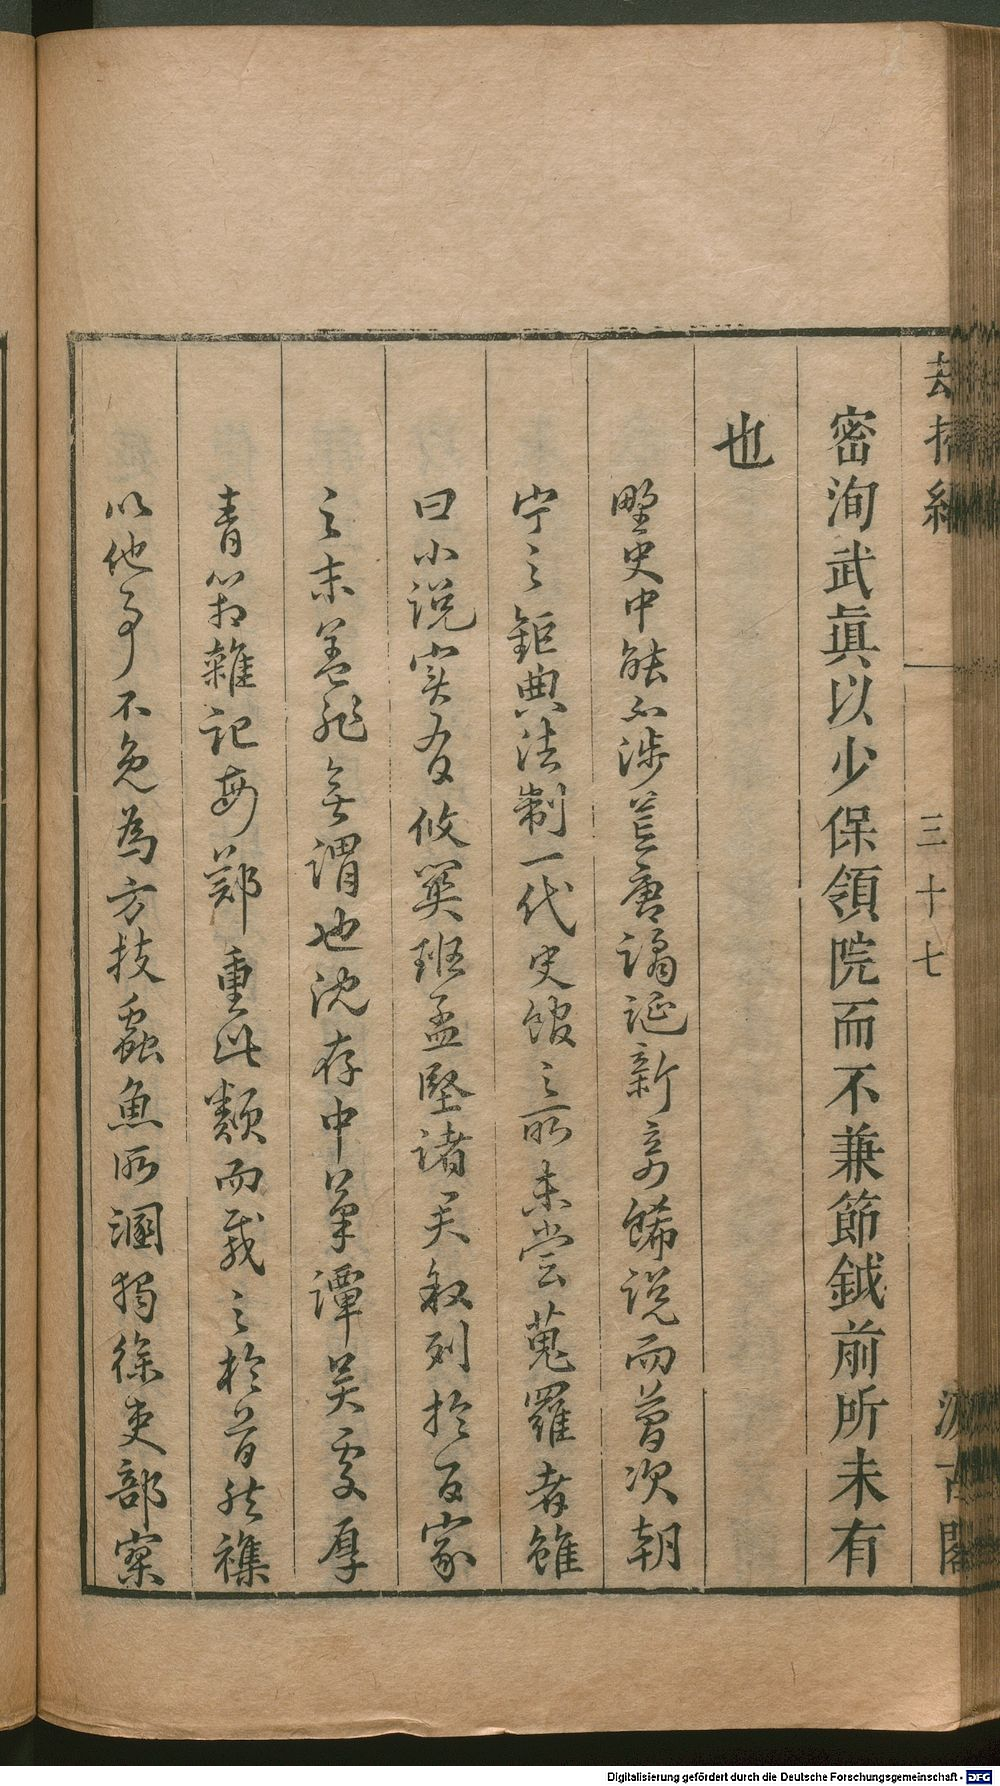 却掃編
三十七
汲古閣
密洵武眞以少保領院而不兼節鉞前所未有
也
野史中能不涉荒唐譎誕新奇餙說而著次朝
宁之鉅典法制一代史館之所未嘗蒐羅者雖
曰小說实有攸 班孟堅諸 叙列於百家
之末盖非無謂也沈存中筆譚吴處厚
青箱雜記每鄭重此類而載之於首然襍
以他事不免為方技蟲魚所溷獨徐吏部
Digitalisierung gefördert durch die Deutsche Forschungsgemeinschaft - DFG